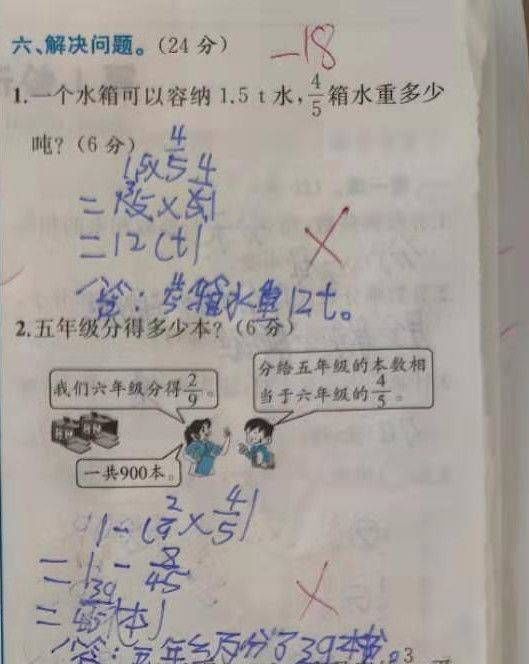 六、解决问题。(24分)
-18
1.一个水箱可以容纳1.5 t水，4/5箱水重多少
吨？(6分)
1.5×4/5
=12(t)
答：4/5箱水重12t。
2.五年级分得多少本？(6分)
我们六年级分得2/9。
分给五年级的本数相
当于六年级的4/5。
一共900本。
1-(2/9×4/5)
=1-8/45
=39/45(本)